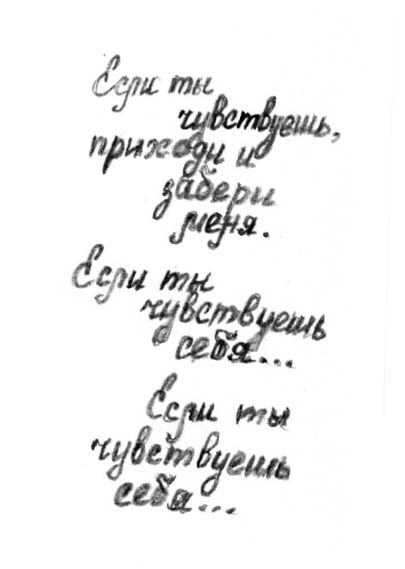 Если ты
чувствуешь,
приходи и
забери
меня.
Если ты
чувствуешь
себя...
Если ты
чувствуешь
себя...